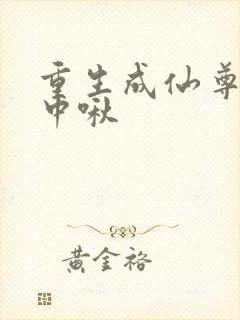 重生成仙尊
中啾
黄金裕